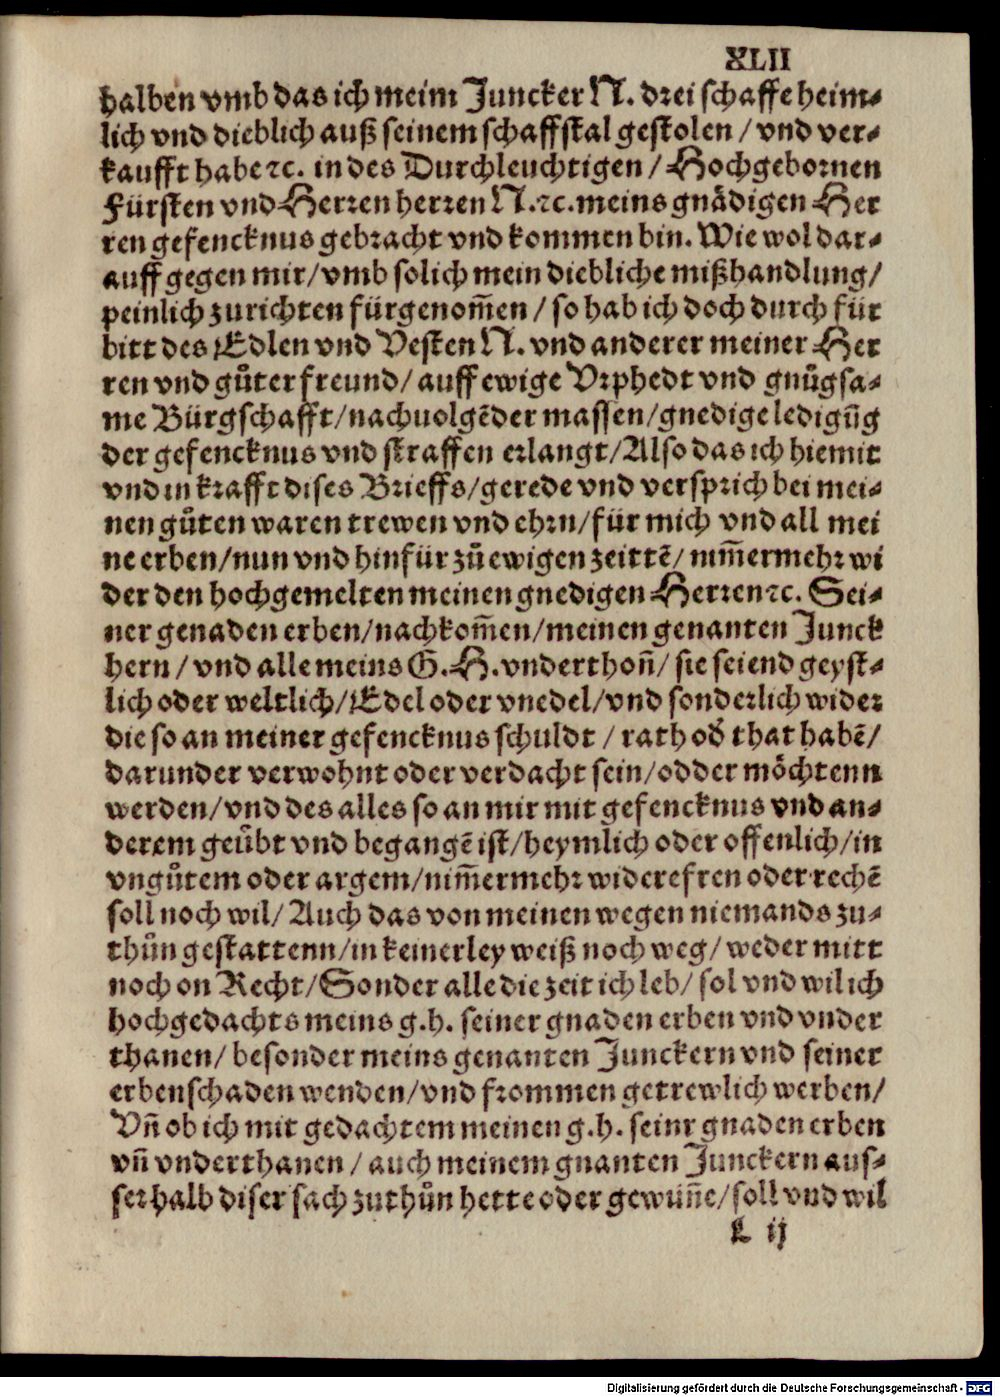 XLII
halben vmb das ich meim Juncker N. drei schaffe heim-
lich vnd dieblich auß seinem schaffstal gestolen / vnd ver-
kaufft habe ꝛc. in des Durchleuchtigen / Hochgebornen
Fürsten vnd Herren herren N. ꝛc. meins gnädigen Her
ren gefencknus gebracht vnd kommen bin. Wie wol dar-
auff gegen mir / vmb solich mein diebliche mißhandlung /
peinlich zurichten fürgenom̄en / so hab ich doch durch für
bitt des Edlen vnd Vesten N. vnd anderer meiner Her
ren vnd gůter freund / auff ewige Vrphedt vnd gnůgsa-
me Bürgschafft / nachuolgēder massen / gnedige ledigūg
der gefencknus vnd straffen erlangt / Also das ich hiemit
vnd in krafft dises Brieffs / gerede vnd versprich bei mei-
nen gůten waren trewen vnd ehrn / für mich vnd all mei
ne erben / nun vnd hinfür zů ewigen zeittē / nim̄ermehr wi
der den hochgemelten meinen gnedigen Herren ꝛc. Sei-
ner genaden erben / nachkom̄en / meinen genanten Junck
hern / vnd alle meins G. H. vnderthon̄ / sie seiend geyst-
lich oder weltlich / Edel oder vnedel / vnd sonderlich wider
die so an meiner gefencknus schuldt / rath od̓ that habē /
darunder verwohnt oder verdacht sein / odder möchtenn
werden / vnd des alles so an mir mit gefencknus vnd an-
derem geůbt vnd begangē ist / heymlich oder offenlich / in
vngůtem oder argem / nim̄ermehr widerefren oder rechē
soll noch wil / Auch das von meinen wegen niemands zu-
thůn gestattenn / in keinerley weiß noch weg / weder mitt
noch on Recht / Sonder alle die zeit ich leb / sol vnd wil ich
hochgedachts meins g. h. seiner gnaden erben vnd vnder
thanen / besonder meins genanten Junckern vnd seiner
erben schaden wenden / vnd frommen getrewlich werben /
Vn̄ ob ich mit gedachtem meinen g. h. seinr gnaden erben
vn̄ vnderthanen / auch meinem gnanten Junckern aus-
serhalb diser sach zuthůn hette oder gewün̄e / soll vnd wil
L ij
Digitalisierung gefördert durch die Deutsche Forschungsgemeinschaft - DFG